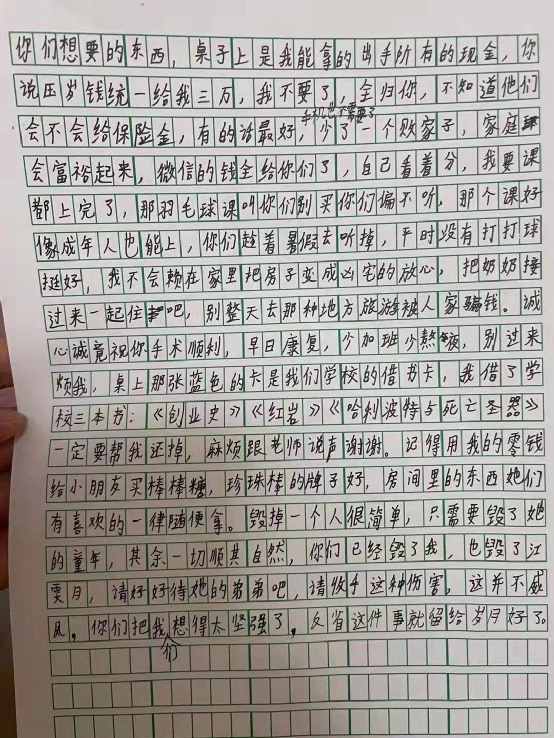 你们想要的东西，桌子上是我能拿的出手所有的现金，你
说压岁钱统一给我三万，我不要了，全归你，不知道他们
会不会给保险金，有的话最好，少了一个败家子，家庭
手机也不需要了
会富裕起来，微信的钱全给你们了，自己看着分，我要课
都上完了，那羽毛球课叫你们别买你们偏不听，那个课好
像成年人也能上，你们趁着暑假去听掉，平时没有打打球
挺好，我不会赖在家里把房子变成凶宅的放心，把奶奶接
过来一起住吧，别整天去那种地方旅游被人家骗钱。诚
心诚竟祝你手术顺利，早日康复，少加班少熬夜，别过来
烦我，桌上那张蓝色的卡是我们学校的借书卡，我借了学
校三本书：《创业史》《红岩》《哈利波特与死亡圣器》
一定要帮我还掉，麻烦跟老师说声谢谢。记得用我的零钱
给小朋友买棒棒糖，珍珠棒的牌子好，房间里的东西她们
有喜欢的一律随便拿。毁掉一个人很简单，只需要毁了她
的童年，其余一切顺其自然，你们已经毁了我，也毁了江
雯月，请好好待她的弟弟吧，请收手这种伤害，这并不威
风，你们把我们想得太坚强了，反省这件事就留给岁月好了。